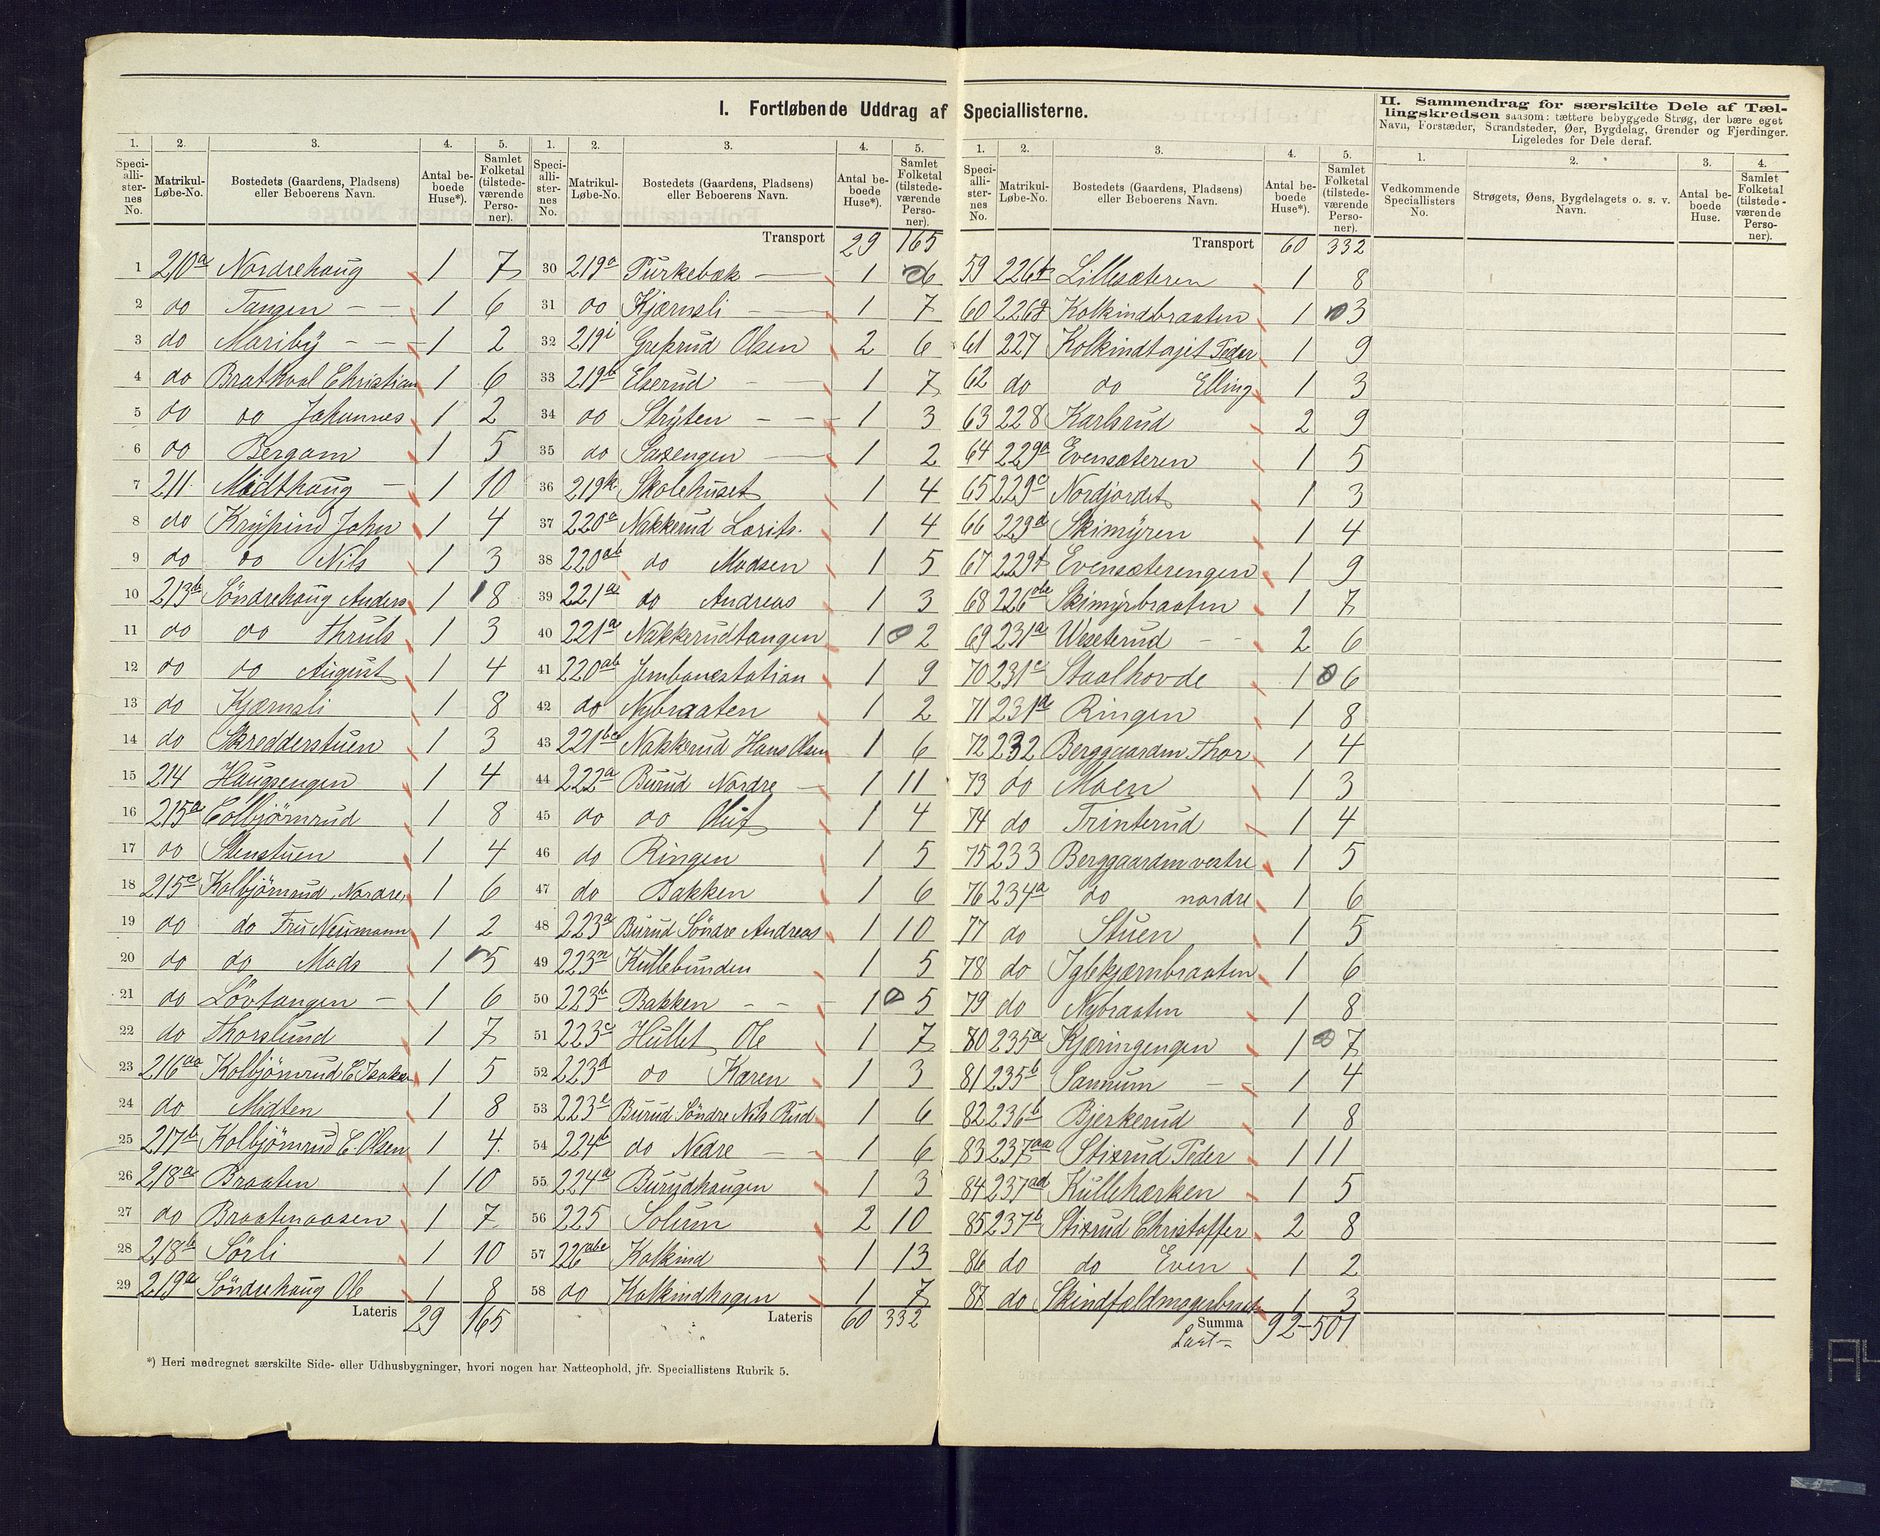 I. Fortløbende Uddrag af Speciallisterne.
II. Sammendrag for særskilte Dele af Tællingskredsen saasom: tættere bebyggede Strøg, der bære eget Navn, Forstæder, Strandsteder, Øer, Bygdelag, Grender og Fjerdinger. Ligeledes for Dele deraf.
1. 2. 3. 4. 5. 1. 2. 3. 4. 5. 1. 2. 3. 4. 5. 1. 2. 3. 4.
Speciallisternes No. Matrikul-Løbe-No. Bostedets (Gaardens, Pladsens) eller Beboerens Navn. Antal beboede Huse*). Samlet Folketal (tilstedeværende Personer).
Speciallisternes No. Matrikul-Løbe-No. Bostedets (Gaardens, Pladsens) eller Beboerens Navn. Antal beboede Huse*). Samlet Folketal (tilstedeværende Personer).
Speciallisternes No. Matrikul-Løbe-No. Bostedets (Gaardens, Pladsens) eller Beboerens Navn. Antal beboede Huse*). Samlet Folketal (tilstedeværende Personer).
Vedkommende Speciallisters No. Strøgets, Øens, Bygdelagets o. s. v. Navn. Antal beboede Huse. Samlet Folketal (tilstedeværende Personer).
1 210a Nordrehaug 1 7
2 do Tangen 1 6
3 do Moriby 1 2
4 do Bratkval Christian 1 6
5 do do Johannes 1 2
6 do Bergom 1 5
7 211 Modthaug 1 10
8 do Kryspind John 1 4
9 do do Nils 1 3
10 213b Søndrehaug Anders 1 8
11 do do Thruls 1 3
12 do do August 1 4
13 do Kjærnsli 1 8
14 do Skredderstuen 1 3
15 214 Haugsengen 1 4
16 215a Colbjørnrud 1 8
17 do Stenstuen 1 4
18 215c Kolbjørnrud, Nordre 1 6
19 do do Fru Neumann 1 2
20 do do Mads 1 5
21 do Løvtangen 1 6
22 do Thorslund 1 7
23 216aa Kolbjørnrud E. Isaks 1 5
24 do Midten 1 8
25 217b Kolbjørnrud E. Olsen 1 4
26 218a Braaten 1 10
27 do Braatenaasen 1 7
28 218b Sørli 1 10
29 219a Søndrehaug Ole 1 8
Lateris 29 165
Transport 29 165
30 219a Purkebæk 1 6
31 do Kjærnsli 1 7
32 219i Gresrud Olsen 2 6
33 219b Elserud 1 7
34 do Stryten 1 3
35 do Saxengen 1 2
36 219k Skolehuset 1 4
37 220a Nakkerud Lorits. 1 4
38 220ab do Madsen 1 5
39 221a do Andreas 1 3
40 221a Nakkerudtangen 1 2
41 220ab Jernbanestation 1 9
42 do Nybraaten 1 2
43 221bc Nakkerud Hans Olsen 1 6
44 222a Burud Nordre 1 11
45 do do Oluf 1 4
46 do Ringen 1 5
47 do Bakken 1 6
48 223a Burud Søndre Andreas 1 10
49 223n Kullebunden 1 5
50 223b Bakken 1 5
51 223c Hullet Ole 1 7
52 223d do Karen 1 3
53 223e Burud Søndre Nils Rud 1 6
54 224b do Nedre 1 6
55 224a Burudhaugen 1 3
56 225 Solum 2 10
57 226abc Kolkind 1 13
58 do Kolkindhagen 1 7
Lateris 60 332
Transport 60 332
59 226f Lillesæteren 1 8
60 226g Kolkindbraaten 1 3
61 227 Kolkindtajet Peder 1 9
62 do do Elling 1 3
63 228 Karlsrud 2 9
64 229a Evensæteren 1 5
65 229c Nordjordet 1 3
66 229d Skimyren 1 4
67 229f Evensæterengen 1 9
68 226de Skimyrbraaten 1 7
69 231a Weseterud 2 6
70 231c Staalhovde 1 6
71 231d Ringen 1 8
72 232 Berggaarden Thor 1 4
73 do Moen 1 3
74 do Trinterud 1 4
75 233 Berggaarden vestre 1 5
76 234a do nordre 1 6
77 do Stuen 1 5
78 do Iglekjærnbraaten 1 6
79 do Nybraaten 1 8
80 235a Kjæringengen 1 7
81 235b Sannum 1 4
82 236b Bjerkerud 1 8
83 237aa Stixrud Peder 1 11
84 237ad Kullehærken 1 5
85 237b Stixrud Christoffer 2 8
86 do do Even 1 2
87 do Skindfældmogerbraat 1 3
Summa 92 - 501
*) Heri medregnet særskilte Side- eller Udhusbygninger, hvori nogen har Natteophold, jfr. Speciallistens Rubrik 5.